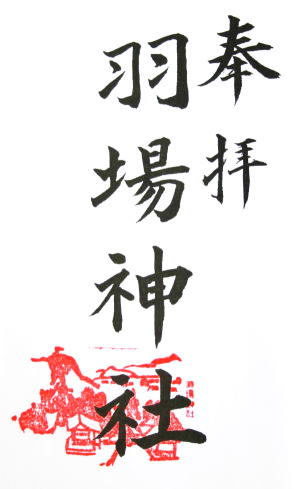 奉拝
羽場神社